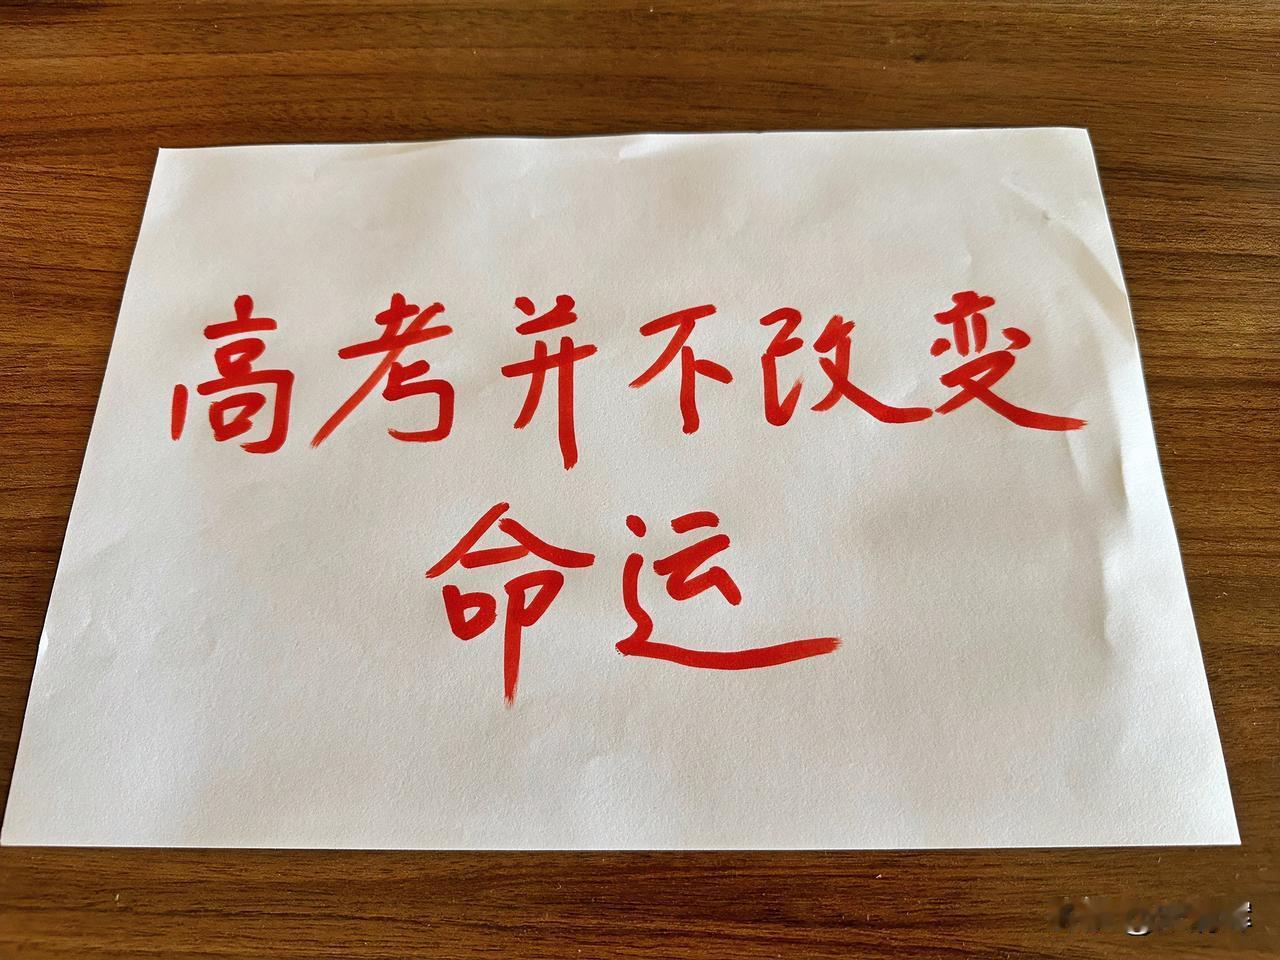 高考并不改变
命运